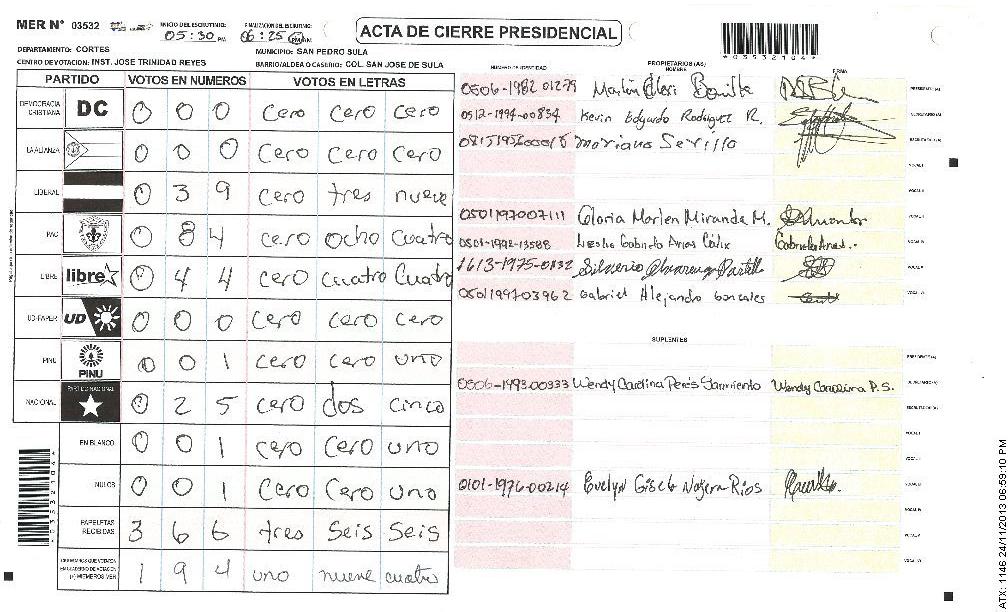 MER N° 03532
INICIO DEL ESCRUTINIO:
05:30 PM
FINALIZACION DEL ESCRUTINIO:
06:25
ACTA DE CIERRE PRESIDENCIAL
*03532104*
DEPARTAMENTO: CORTES
MUNICIPIO: SAN PEDRO SULA
CENTRO DE VOTACION: INST. JOSE TRINIDAD REYES
BARRIO/ALDEA O CASERIO: COL. SAN JOSE DE SULA
PARTIDO VOTOS EN NUMEROS VOTOS EN LETRAS
DEMOCRACIA CRISTIANA DC 0 0 0 cero cero cero
LA ALIANZA 0 0 0 cero cero cero
LIBERAL 0 3 9 cero tres nueve
PAC 0 8 4 cero ocho cuatro
LIBRE libre 0 4 4 cero cuatro cuatro
UD-FAPER UD 0 0 0 cero cero cero
PINU PINU 0 0 1 cero cero uno
NACIONAL PARTIDO NACIONAL 0 2 5 cero dos cinco
EN BLANCO 0 0 1 cero cero uno
NULOS 0 0 1 cero cero uno
PAPELETAS RECIBIDAS 3 6 6 tres seis seis
1 9 4 uno nueve cuatro
NUMERO DE IDENTIDAD
PROPIETARIOS (AS)
NOMBRE
FIRMA
0506-1982 01279 Bonilla
0512-1994-00834 Kevin Edgardo Rodriguez R.
Mariano Sevilla
0501197007111 Gloria Marlen Miranda M.
0501-1992-13588 Gabriela Arias
1613-1975-0132 Silverio
0501199703962 Gabriel Alejandro Gonzales
SUPLENTES
0506-1993-00333 Wendy Carolina Perés Sarmiento Wendy Carolina P.S.
0101-1976-00214 Evelyn Gisela Najera Rios
ATX: 1146 24/11/2013 06:59:10 PM